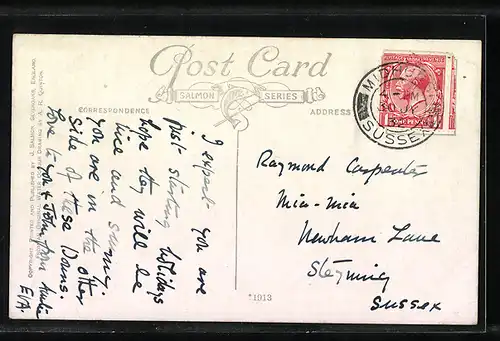 Post Card
SALMON SERIES
CORRESPONDENCE
ADDRESS
COPYRIGHT. PRINTED AND PUBLISHED BY J. SALMON, SEVENOAKS, ENGLAND.
FROM ORIGINAL WATER COLOUR DRAWING BY A. R. QUINTON
MIDHURST
30 JY
SUSSEX
ONE PENNY
I expect you are
just starting holidays
hope they will be
nice and sunny.
You are in the other
side of these Downs.
Love to you & John from Auntie
E/A.
Raymond Carpenter
Mia-mia
Newham Lane
Steyning
Sussex
*1913